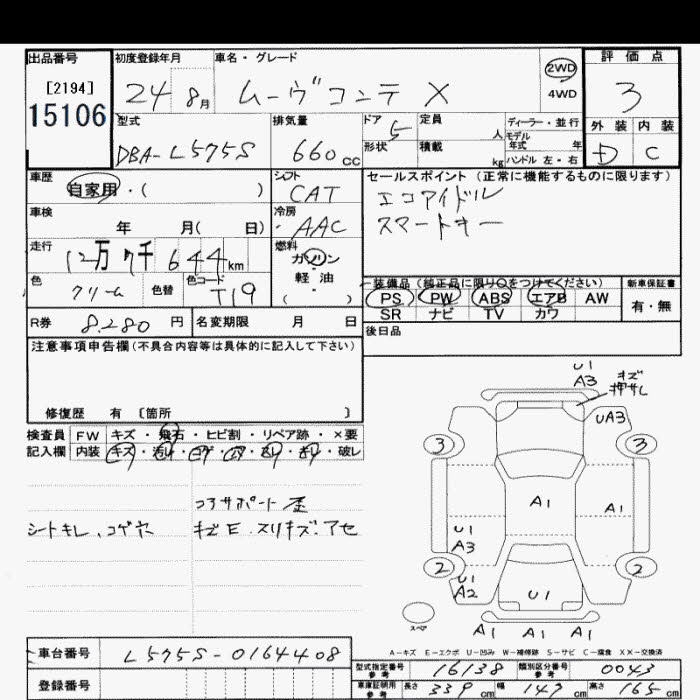 出品番号
[2194]
15106
初度登録年月
24 8月
車名・グレード
ムーヴコンテ X
2WD
4WD
評価点
3
外装 内装
D C
型式
DBA-L575S
排気量
660cc
ドア 5
形状
定員 人
積載 kg
ディーラー・並行
モデル年式 年
ハンドル 左・右
車歴
自家用・( )
シフト
CAT
セールスポイント(正常に機能するものに限ります)
エコアイドル
スマートキー
車検
年 月( 日)
冷房
AAC
走行
12万7千644km
燃料
ガソリン
軽油
( )
色
クリーム
色替
色コード
T19
装備品(純正品に限り○をつけてください)
PS PW ABS エアB AW
SR ナビ TV カワ
新車保証書
有・無
R券 8,280円
名変期限 月 日
後日品
注意事項申告欄(不具合内容等は具体的に記入して下さい)
修復歴 有 〔箇所 〕
検査員記入欄
FW キズ・飛石・ヒビ割・リペア跡・×要
内装 キズ・汚れ・コゲ・穴・スレ・キレ・破レ
コアサポート歪
シートキレ、コゲ穴
キズE.スリキズ.アセ
U1
A3
キズ
押サレ
UA3
3
3
A1
A1
U1
A3
2
2
U1
A2
U1
A1 A1 A1
スペア
A-キズ E-エクボ U-凹み W-補修跡 S-サビ C-腐食 X X-交換済
車台番号
L575S-0164408
登録番号
型式指定番号 参考
16138
類別区分番号 参考
0043
車庫証明用 参考
長さ 339cm
幅 147cm
高さ 165cm